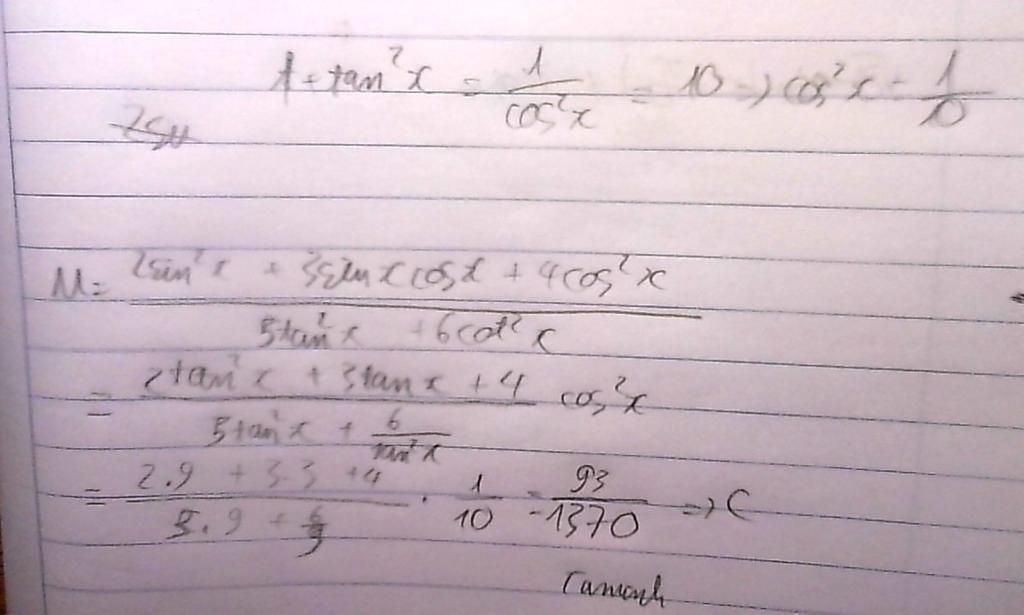 1 + tan²x = 1/cos²x = 10 → cos²x = 1/10
M = (2sin²x + 3sinxcosx + 4cos²x)/(5tan²x + 6cot²x)
= (2tan²x + 3tanx + 4)/(5tan²x + 6/tan²x) cos²x
= (2.9 + 3.3 + 4)/(5.9 + 6/9) . 1/10 = 93/1370 => C